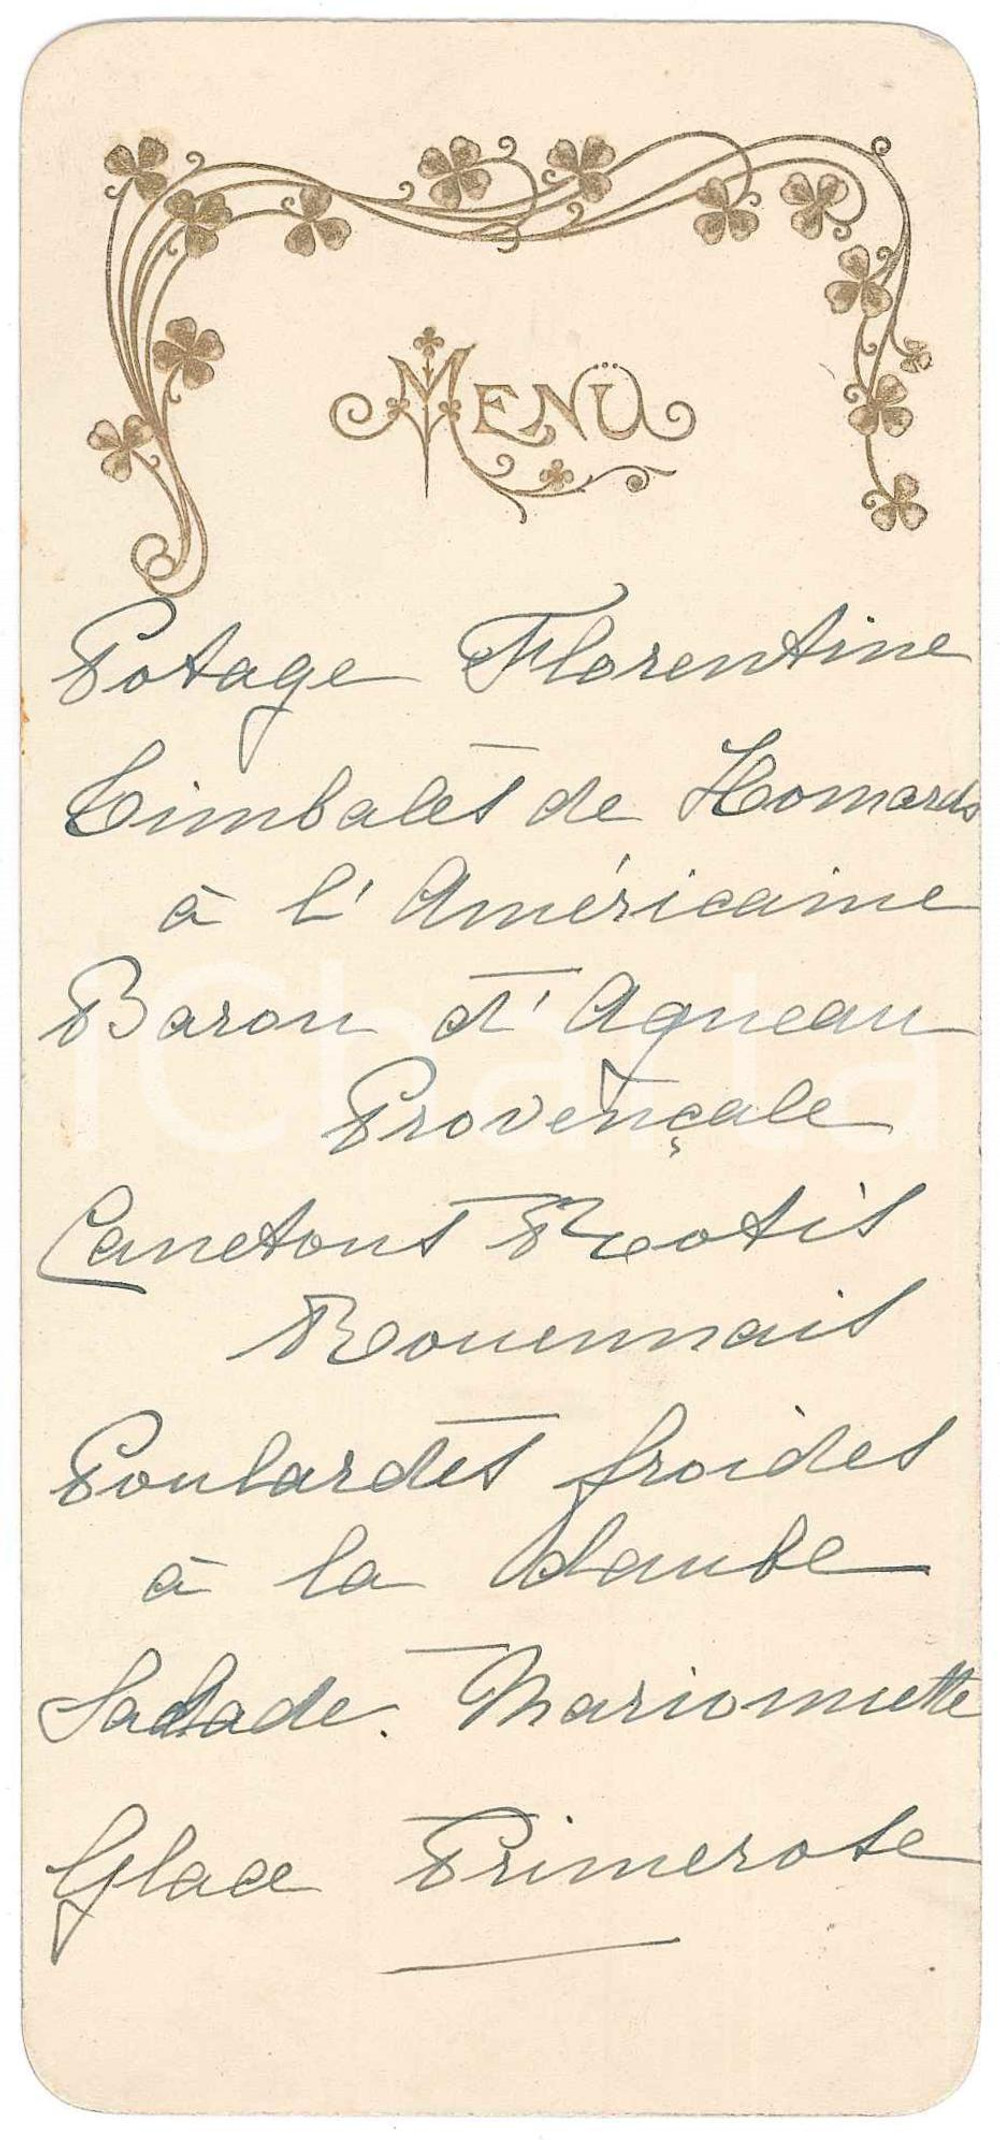 MENU
Potage Florentine
Timbales de Homards
à l'Américaine
Baron d'Agneau
Provençale
Canetons Rotis
Rouennais
Poulardes froides
à la daube
Salade. Marionnette
Glace Primerose